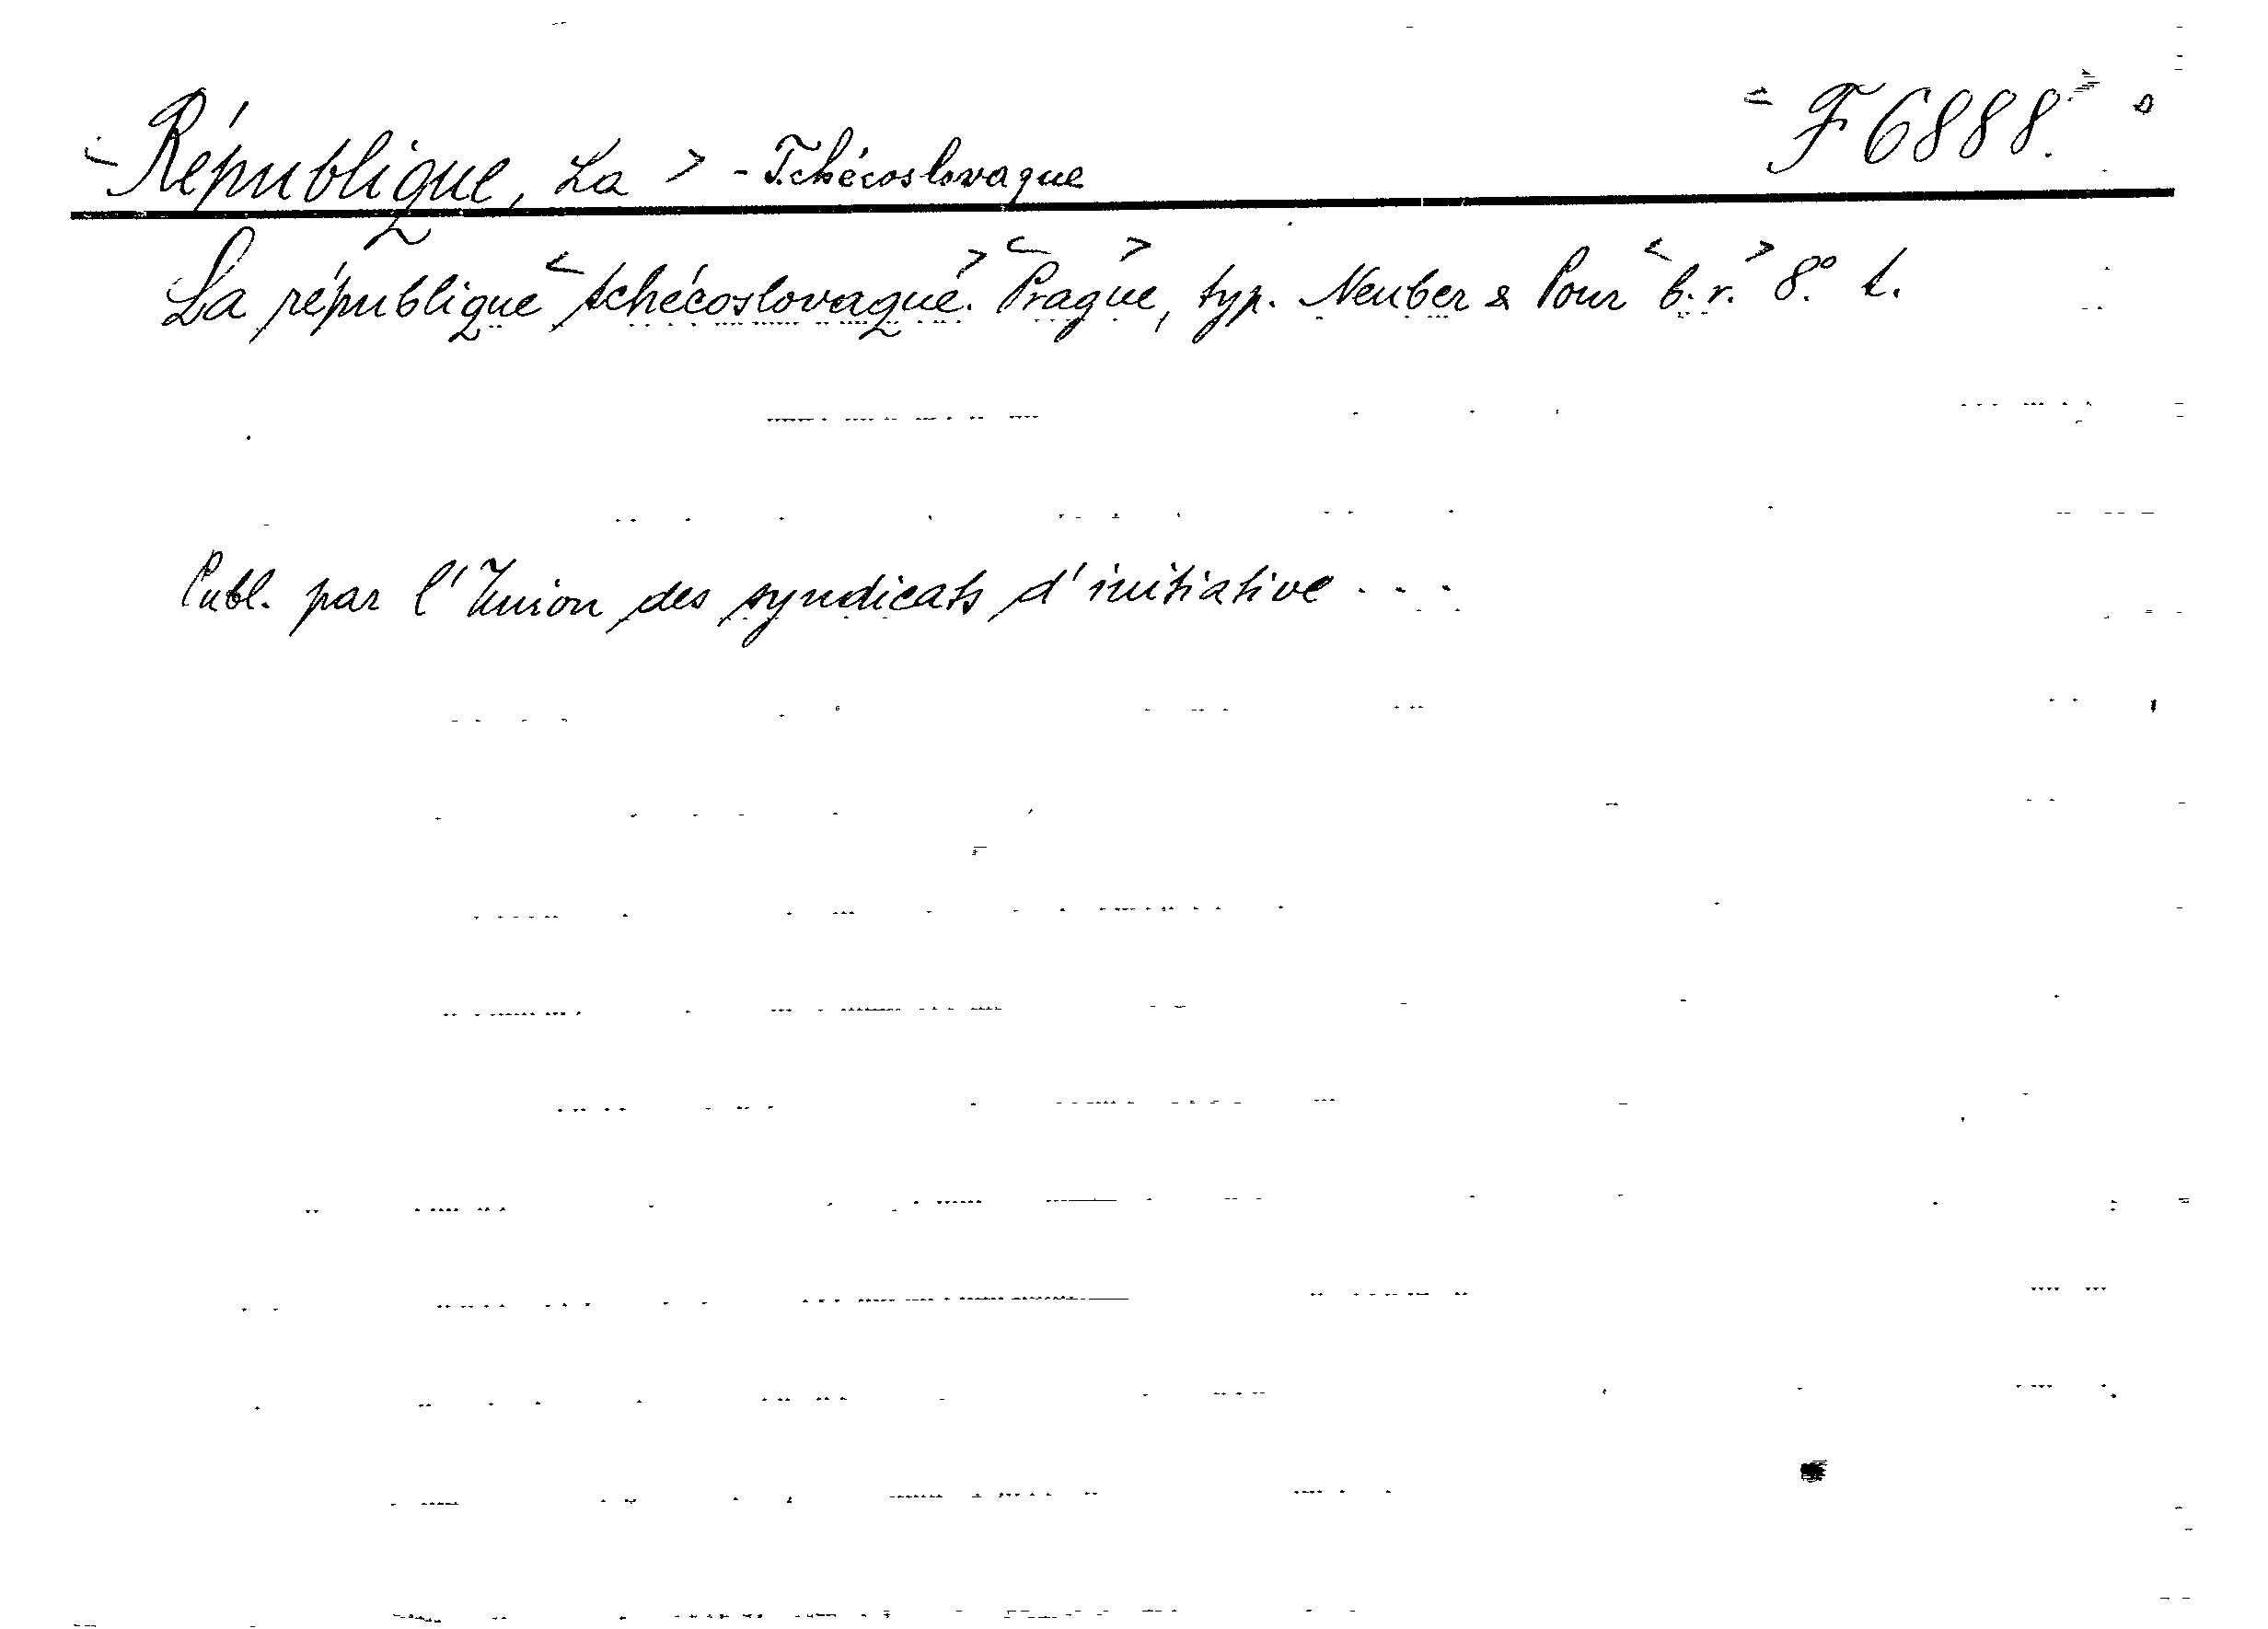 République, La - Tchécoslovaque F 6888.
La république tchécoslovaque. Prague, typ. Neuber & Pour b. r. 8° t.
Publ. par l'Union des syndicats d'initiative . . .